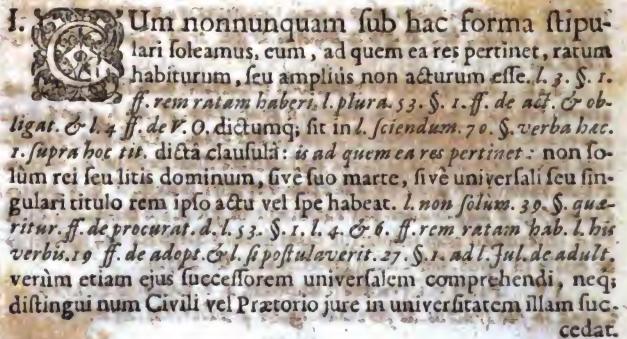 I. CUm nonnunquam ſub hac forma ſtipu-
lari ſoleamus, eum, ad quem ea res pertinet, ratum
habiturum, ſeu ampliùs non acturum eſſe. l. 3. §. 1.
ff. rem ratam haberi. l. plura. 53. §. 1. ff. de act. & ob-
ligat. & l. 4 ff. de V. O. dictumq; ſit in l. ſciendum. 70. §. verba hæc.
1. ſupra hoc tit. dictâ clauſulâ: is ad quem ea res pertinet: non ſo-
lùm rei ſeu litis dominum, ſivè ſuo marte, ſivè univerſali ſeu ſin-
gulari titulo rem ipſo actu vel ſpe habeat. l. non ſolùm. 39. §. quæ-
ritur. ff. de procurat. d. l. 53. §. 1. l. 4. & 6. ff. rem ratam hab. l. his
verbis. 19 ff. de adopt. & l. ſi poſtulaverit. 27. §. 1. ad l. Jul. de adult.
verùm etiam ejus ſucceſſorem univerſalem comprehendi, neq;
diſtingui num Civili vel Prætorio jure in univerſitatem illam ſuc-
cedat.